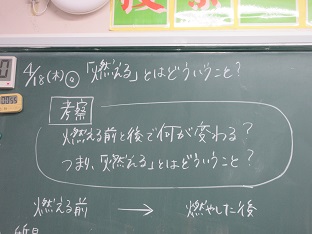 4/18(木)◎「燃える」とはどういうこと?
考察
燃える前と後で何が変わる?
つまり、「燃える」とはどういうこと?
燃える前 → 燃やした後